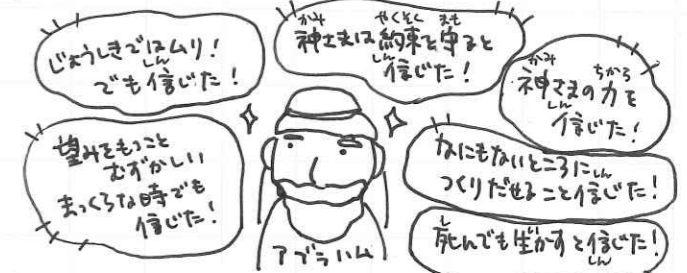 じょうしきではムリ！
でも信じた！
神さまは約束を守ると
信じた！
神さまの力を
信じた！
望みをもつこと
むずかしい
まっくらな時でも
信じた！
なにもないところに
つくりだせること信じた！
死んでも生かすと信じた！
アブラハム